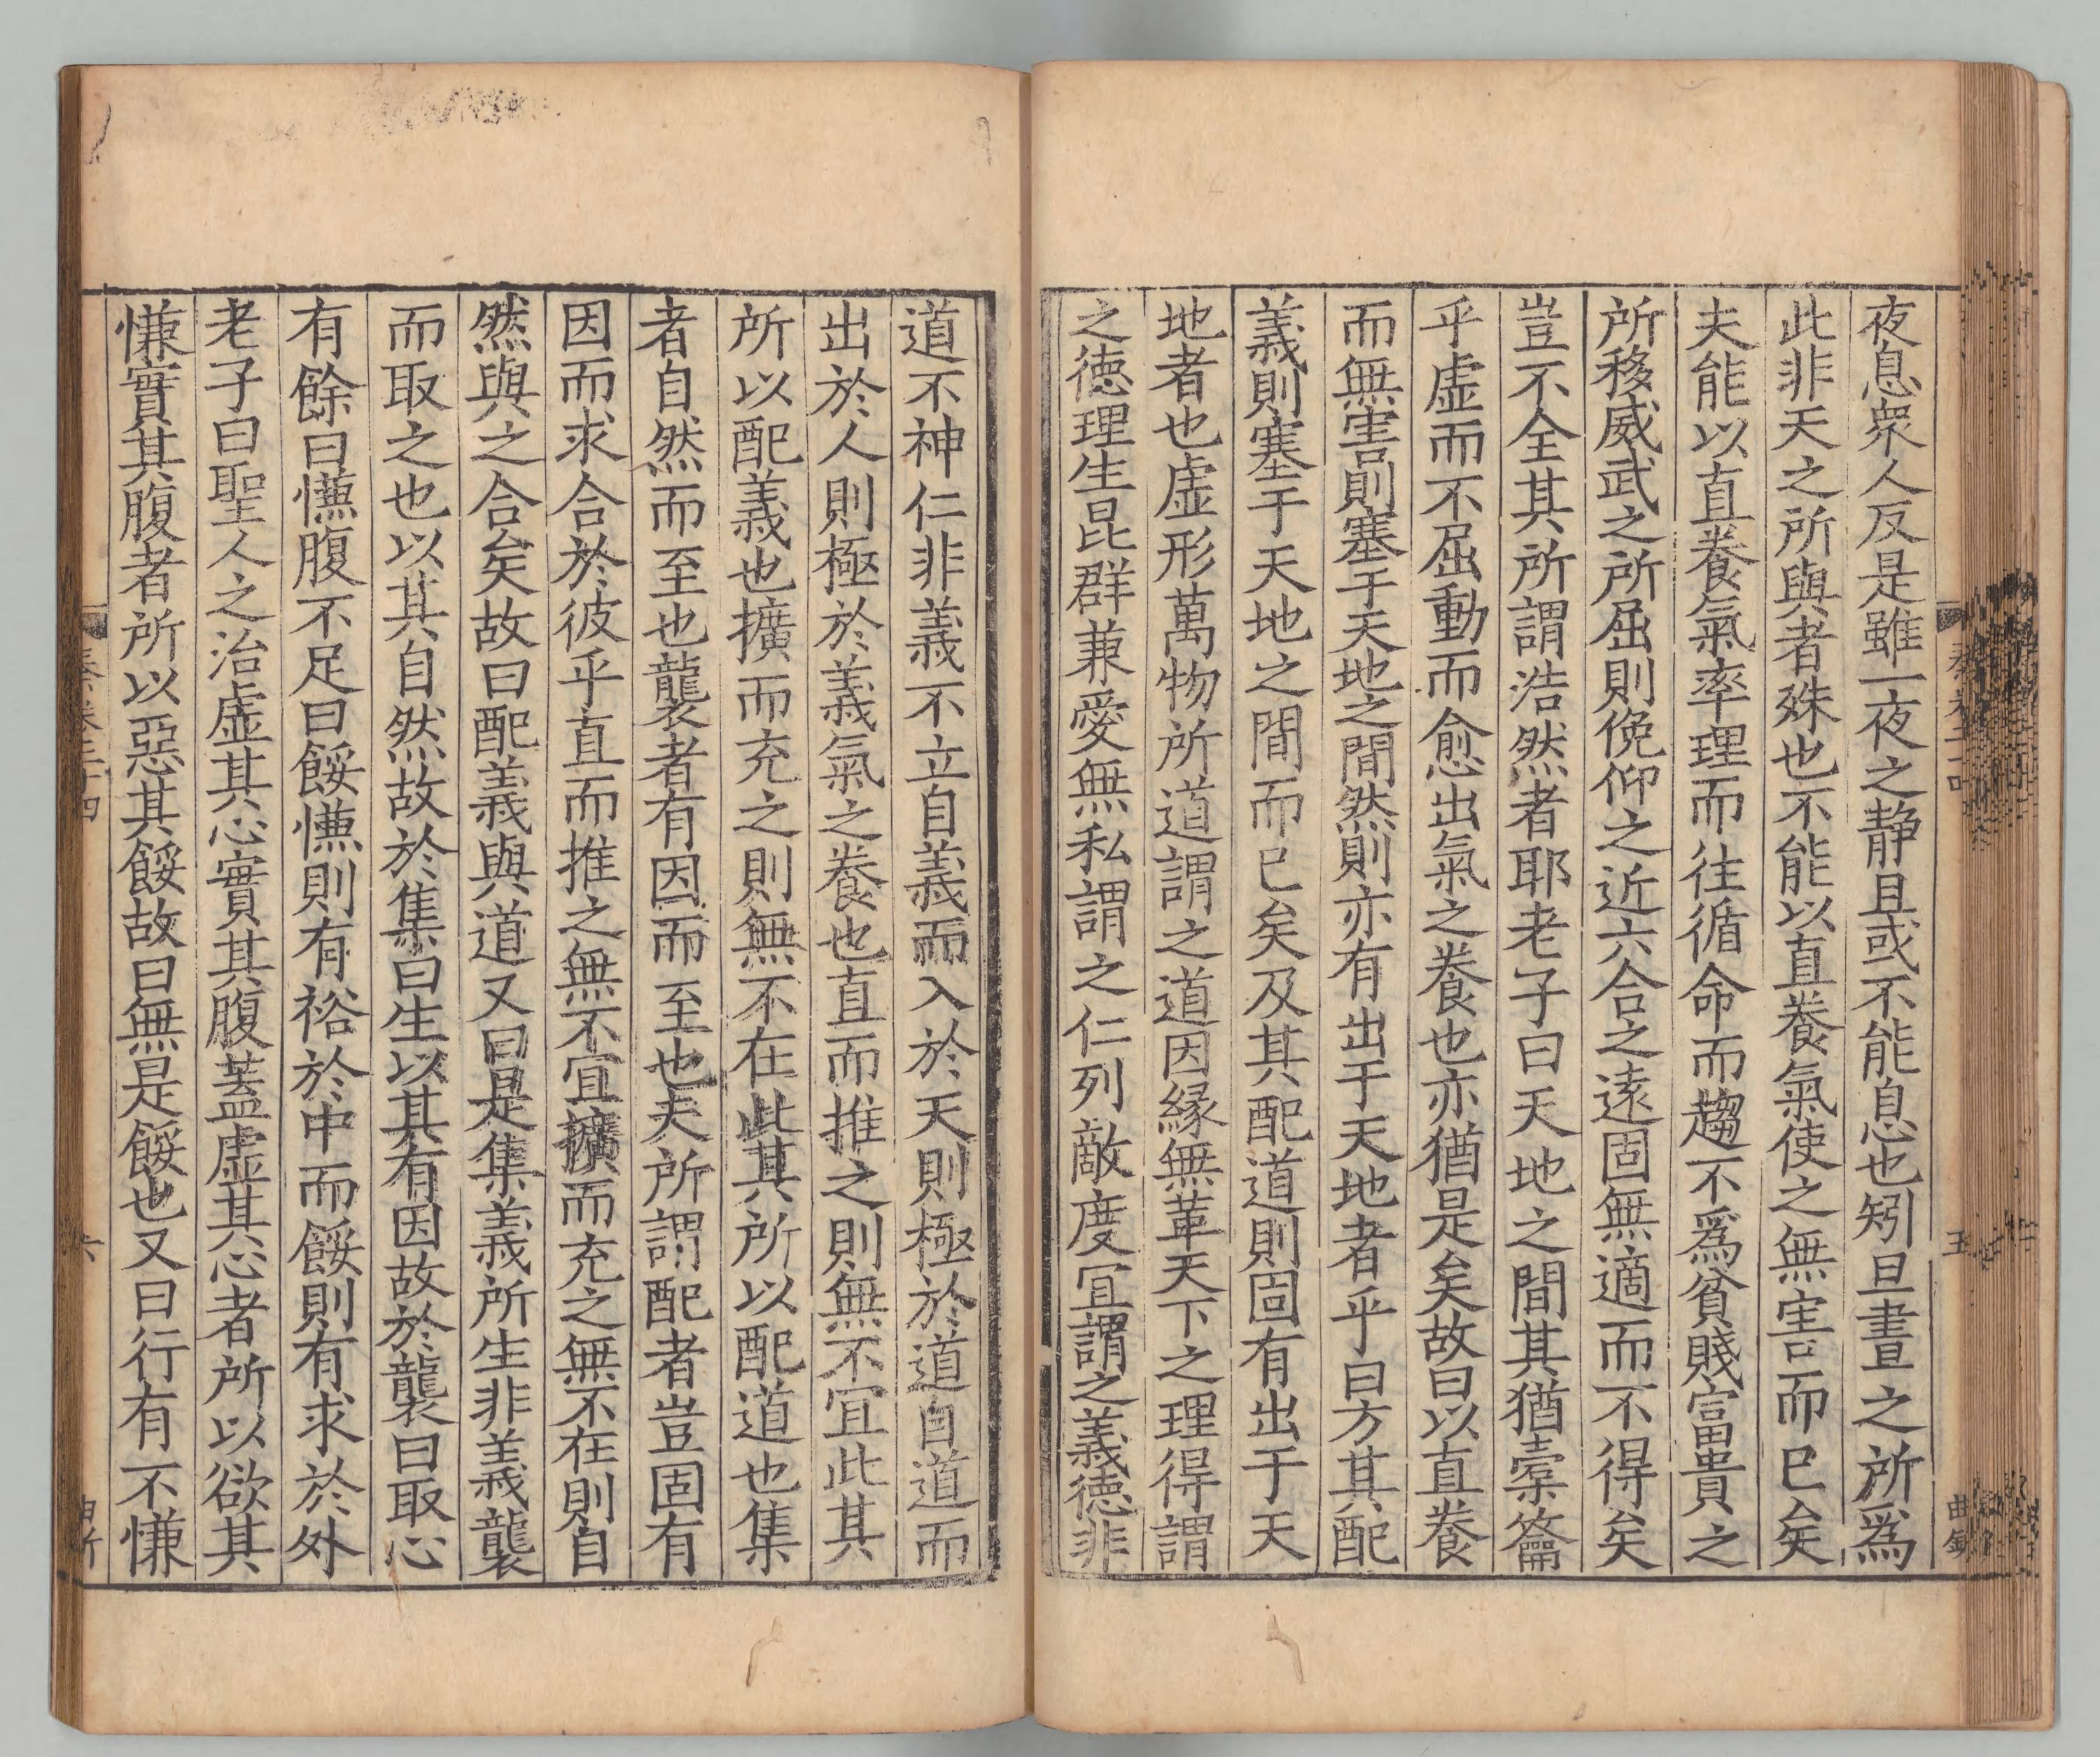 夜息衆人反是雖一夜之静且或不能息也矧旦晝之所爲
此非天之所與者殊也不能以直養氣使之無害而已矣
夫能以直養氣率理而往循命而趨不爲貧賤富貴之
所移威武之所屈則俛仰之近六合之遠固無適而不得矣
豈不全其所謂浩然者耶老子曰天地之間其猶槖籥
乎虚而不屈動而愈出氣之養也亦猶是矣故曰以直養
而無害則塞于天地之間然則亦有出于天地者乎曰方其配
義則塞于天地之間而已矣及其配道則固有出于天
地者也虚形萬物所道謂之道因縁無革天下之理得謂
之徳理生昆群兼愛無私謂之仁列敵度冝謂之義徳非
道不神仁非義不立自義而入於天則極於道自道而
出於人則極於義氣之養也直而推之則無不冝此其
所以配義也擴而充之則無不在此其所以配道也集
者自然而至也襲者有因而至也夫所謂配者豈固有
因而求合於彼乎直而推之無不宜擴而充之無不在則自
然與之合矣故曰配義與道又曰是集義所生非義襲
而取之也以其自然故於集曰生以其有因故於襲曰取心
有餘曰慊腹不足曰餒慊則有裕於中而餒則有求於外
老子曰聖人之治虚其心實其腹蓋虚其心者所以欲其
慊實其腹者所以惡其餒故曰無是餒也又曰行有不慊